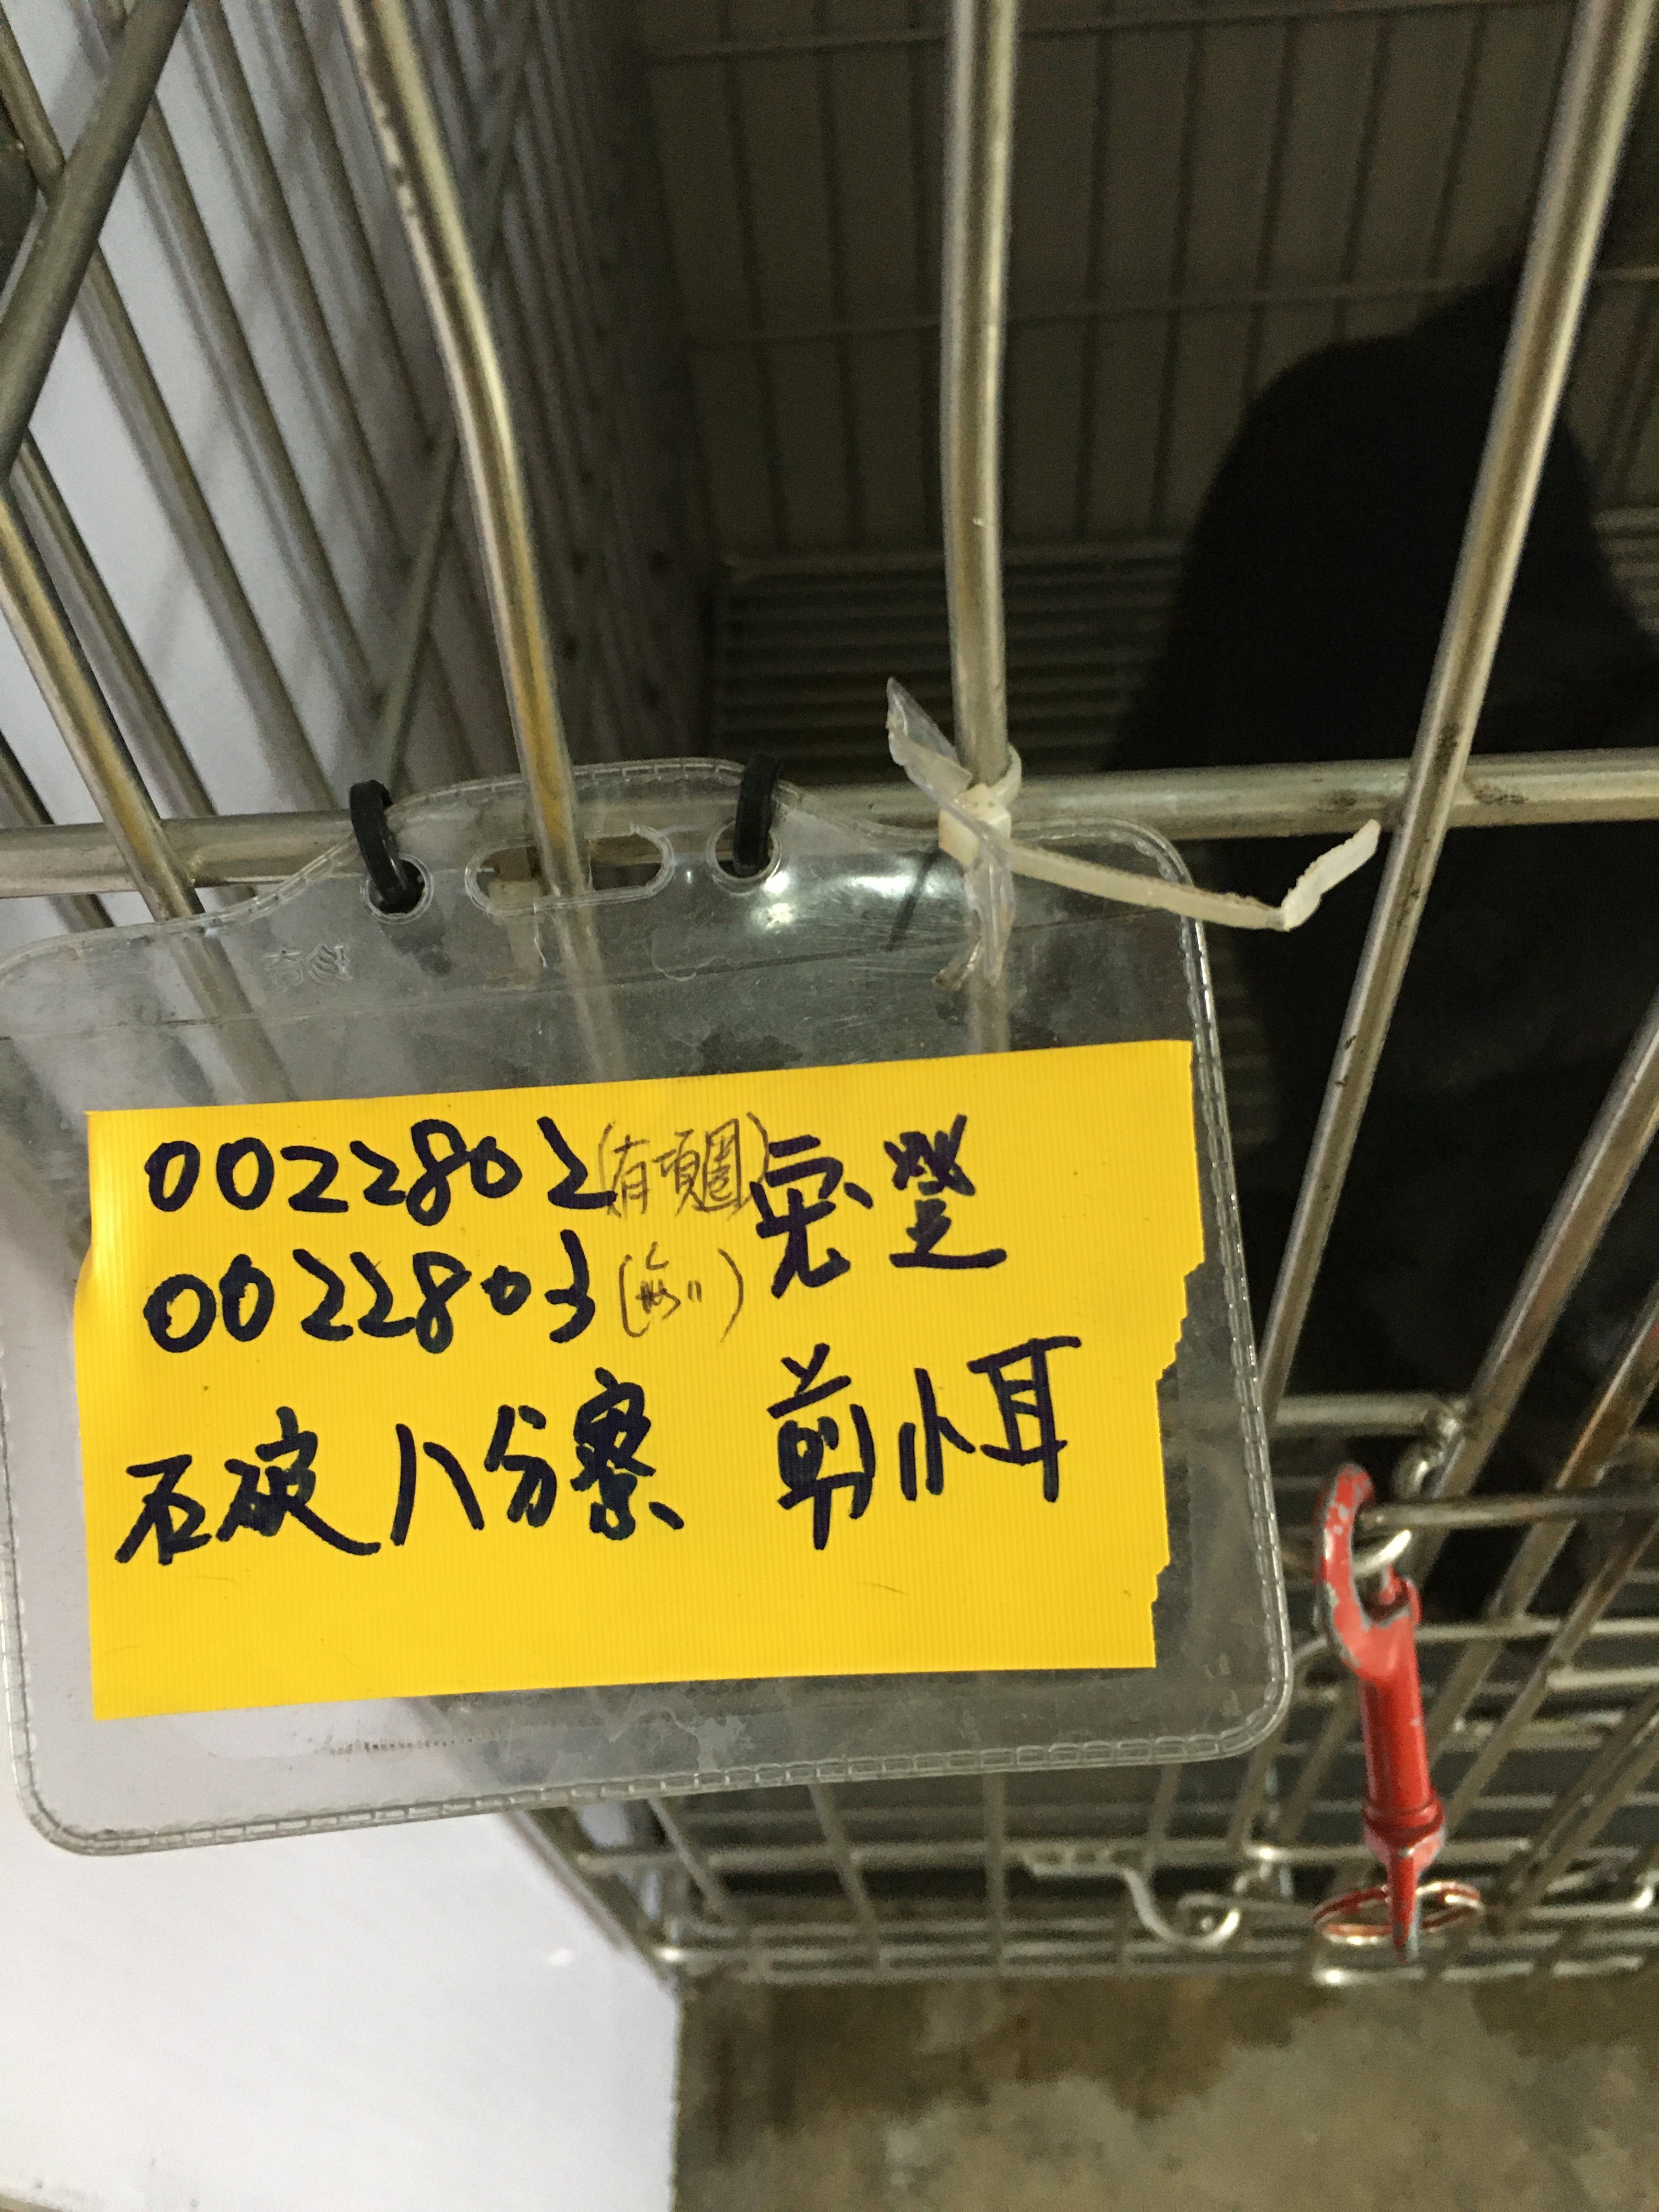 0022802(有項圈)完登
0022803(無〃)
石碇八分寮 剪小耳